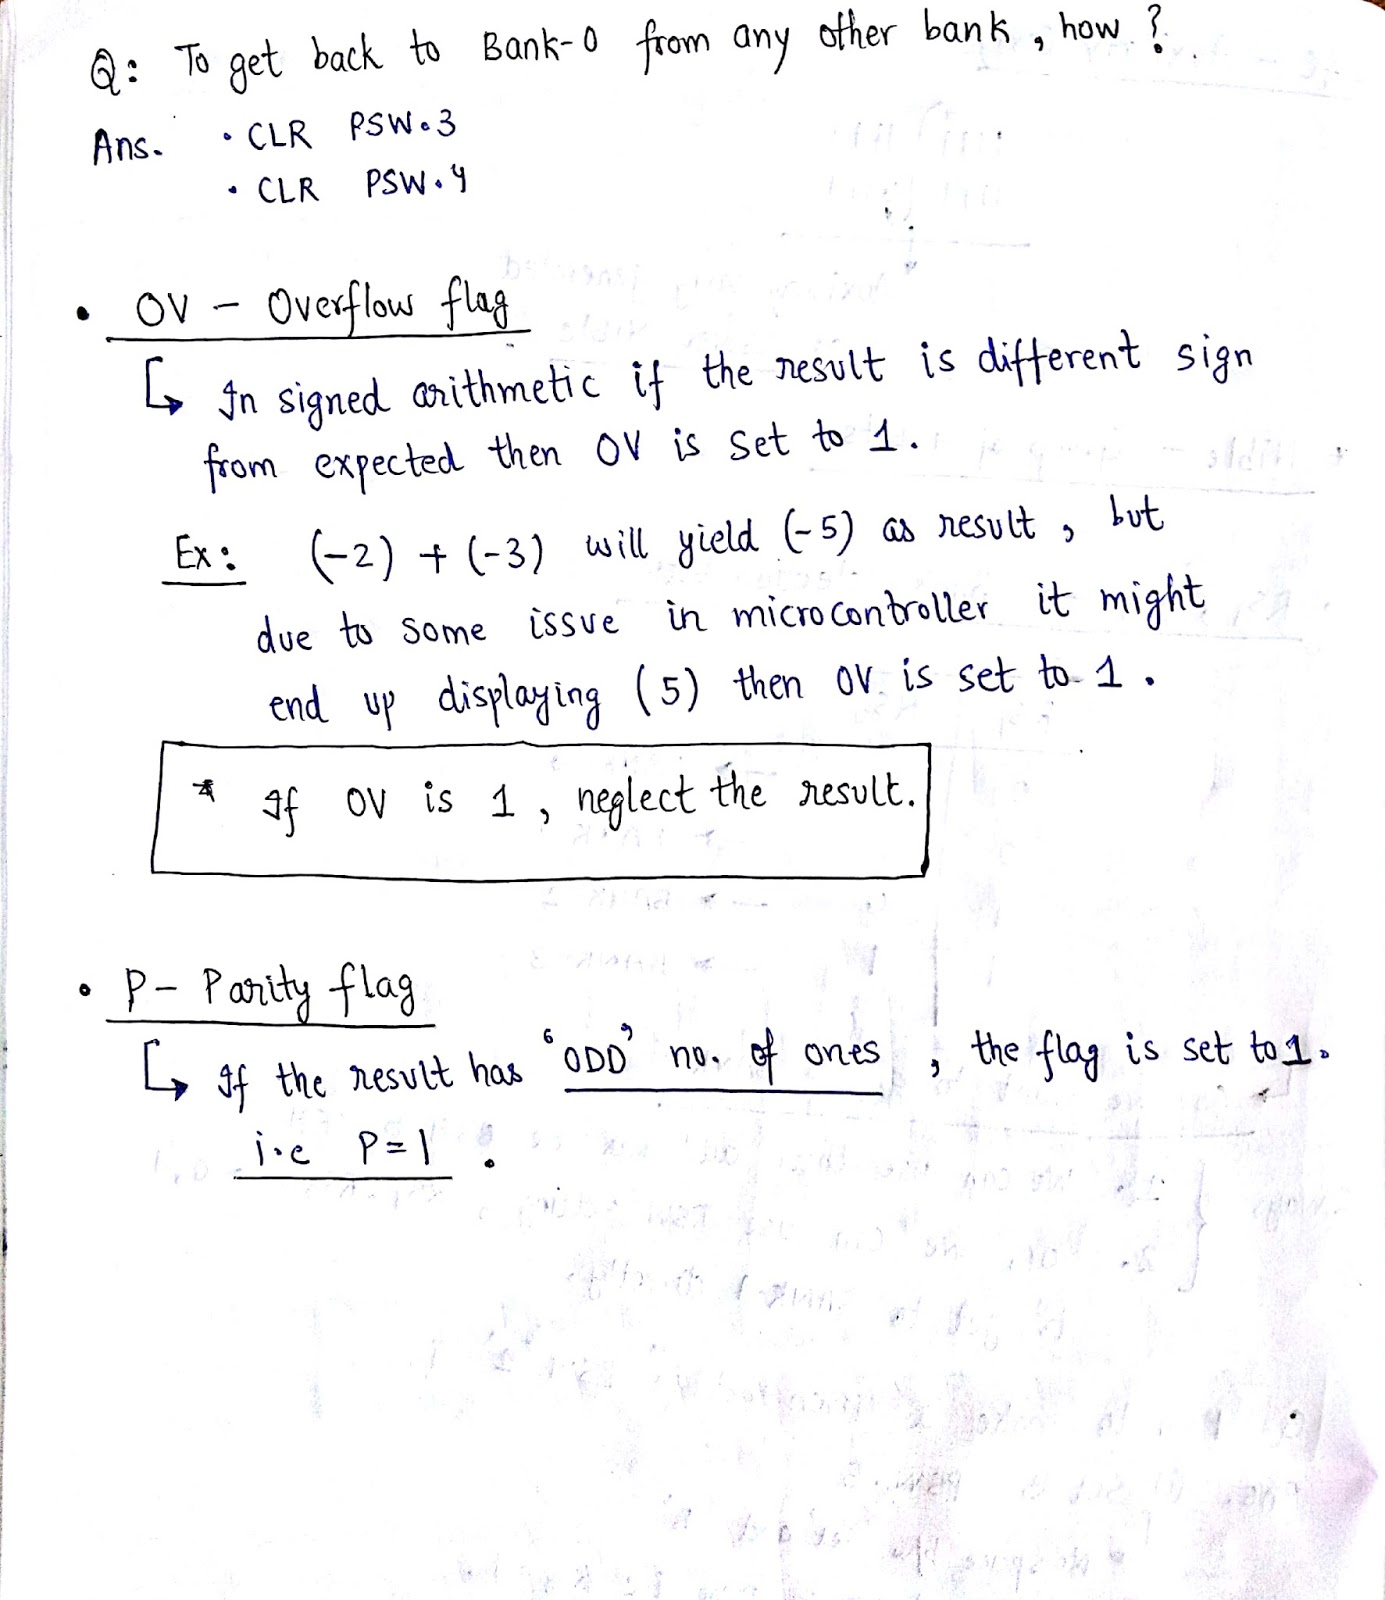 Q: To get back to Bank-0 from any other bank, how?
Ans. • CLR PSW.3
• CLR PSW.4
• OV - Overflow flag
↳ In signed arithmetic if the result is different sign
from expected then OV is set to 1.
Ex: (-2) + (-3) will yield (-5) as result, but
due to some issue in microcontroller it might
end up displaying (5) then OV is set to 1.
* If OV is 1, neglect the result.
• P- Parity flag
↳ If the result has 'ODD' no. of ones, the flag is set to 1.
i.e P=1.